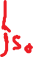 L
js.